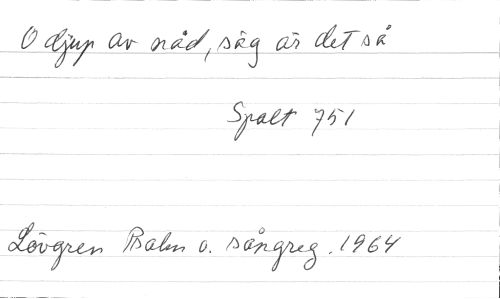 O djup av nåd, säg är det så
Spalt 751
Lövgren Psalm o. sångreg. 1964